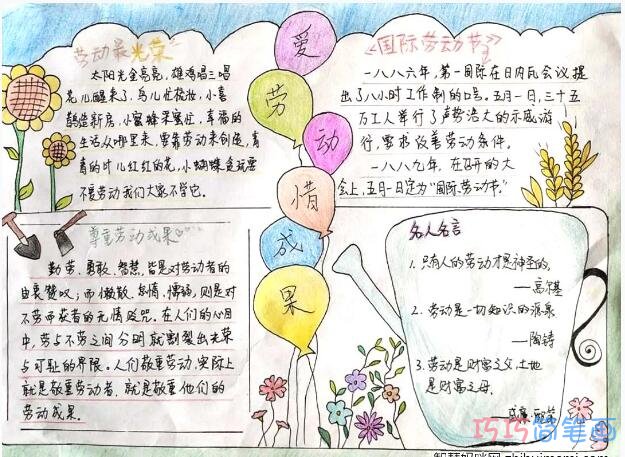 劳动最光荣
太阳光金亮亮，雄鸡唱三唱
花儿醒来了，鸟儿忙梳妆，小喜
鹊造新房，小蜜蜂采蜜忙，幸福的
生活从哪里来，要靠劳动来创造，青
青的叶儿红红的花，小蝴蝶贪玩耍
不爱劳动我们大家不学它。
爱
劳
动
惜
成
果
《国际劳动节》
一八八六年，第一国际在日内瓦会议提
出了八小时工作制的口号。五月一日，三十五
万工人举行了声势浩大的示威游
行，要求改善劳动条件。
一八八九年，在召开的大
会上，五月一日定为"国际劳动节"。
尊重劳动成果
勤劳、勇敢、智慧，皆是对劳动者的
由衷赞叹；而懒散、怠惰、懦弱，则是对
不劳而获者的无情贬咒。在人们的心目
中，劳与不劳之间分明就割裂出光荣
与可耻的界限。人们敬重劳动，实际上
就是敬重劳动者，就是敬重他们的
劳动成果。
名人名言
1. 只有人的劳动才是神圣的。
——高尔基
2. 劳动是一切知识的源泉
——陶铸
3. 劳动是财富之父，土地
是财富之母。
——威廉·配第
巧巧简笔画